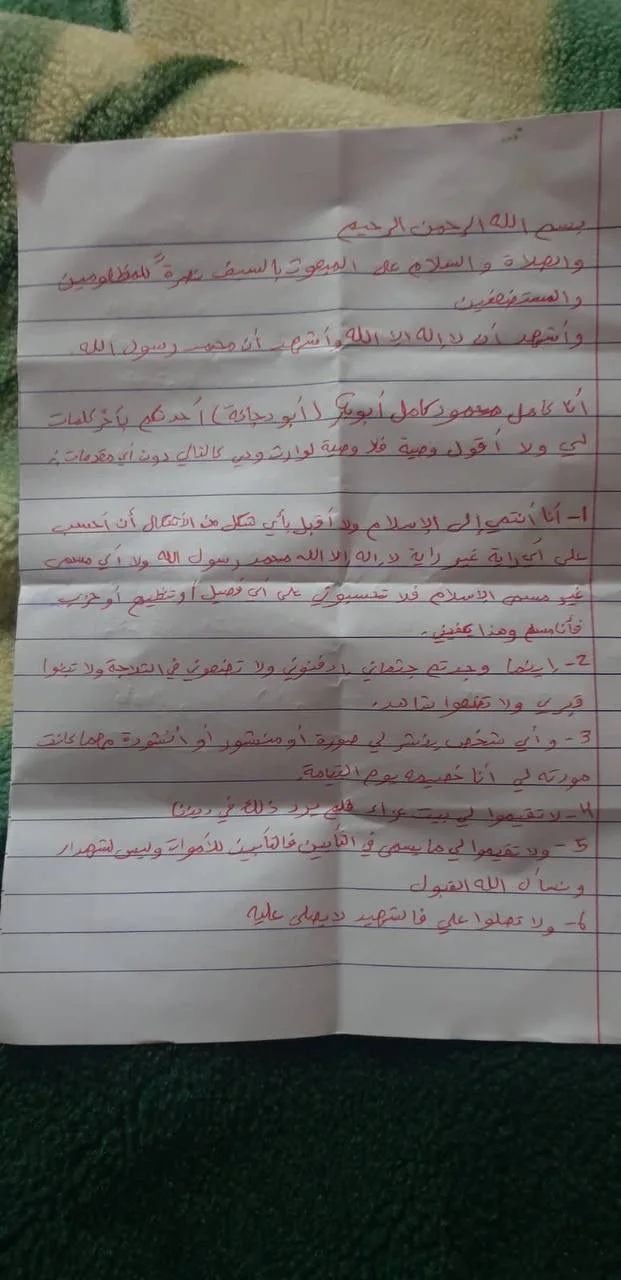 بسم الله الرحمن الرحيم
والصلاة والسلام على المبعوث بالسيف نصرةً للمظلومين
والمستضعفين
وأشهد أن لا إله الا الله وأشهد أن محمد رسول الله
أنا كامل محمود كامل أبوبكر (أبو دجانة) أحدثكم بأخر كلمات
لي ولا أقول وصية فلا وصية لوارث وهي كالتالي دون أي مقدمات :
1- أنا أنتمي إلى الإسلام ولا أقبل بأي شكل من الأشكال أن أحسب
على أي راية غير راية لا إله إلا الله محمد رسول الله ولا أي مسمى
غير مسمى الأسلام فلا تحسبوني على أي فصيل أو تنظيم أو حزب
فأنا مسلم وهذا يكفيني.
2- اينما وجدتم جثماني إدفنوني ولا تضعوني في الثلاجة ولا تبنوا
قبري ولا تضعوا شاهد.
3- وأي شخص ينشر لي صورة أو منشور أو أنشودة مهما كانت
مودته لي أنا خصيمه يوم القيامة.
4- لا تقيموا لي بيت عزاء فلم يرد ذلك في ديننا
5- ولا تقيموا لي ما يسمى في التأبين فالتأبين للأموات وليس للشهداء
ونسأل الله القبول
6- ولا تصلوا علي فالشهيد لا يصلى عليه